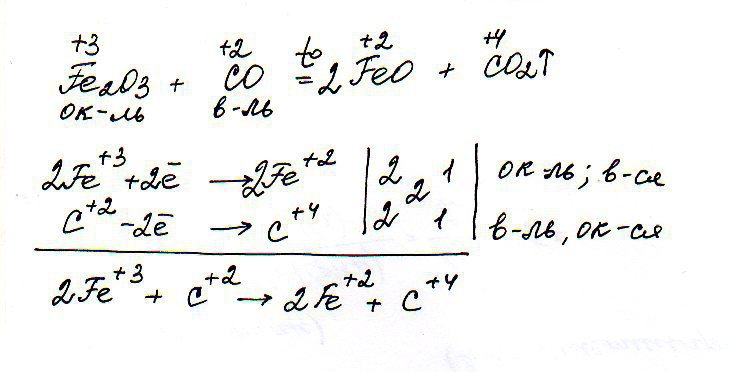 +3 +2 t° +2 +4
Fe2O3 + CO = 2FeO + CO2↑
ок-ль в-ль
2Fe+3 +2ē → 2Fe+2 | 2 2 1 | ок-ль; в-ся
C+2 -2ē → C+4 | 2 1 | в-ль, ок-ся
2Fe+3 + C+2 → 2Fe+2 + C+4